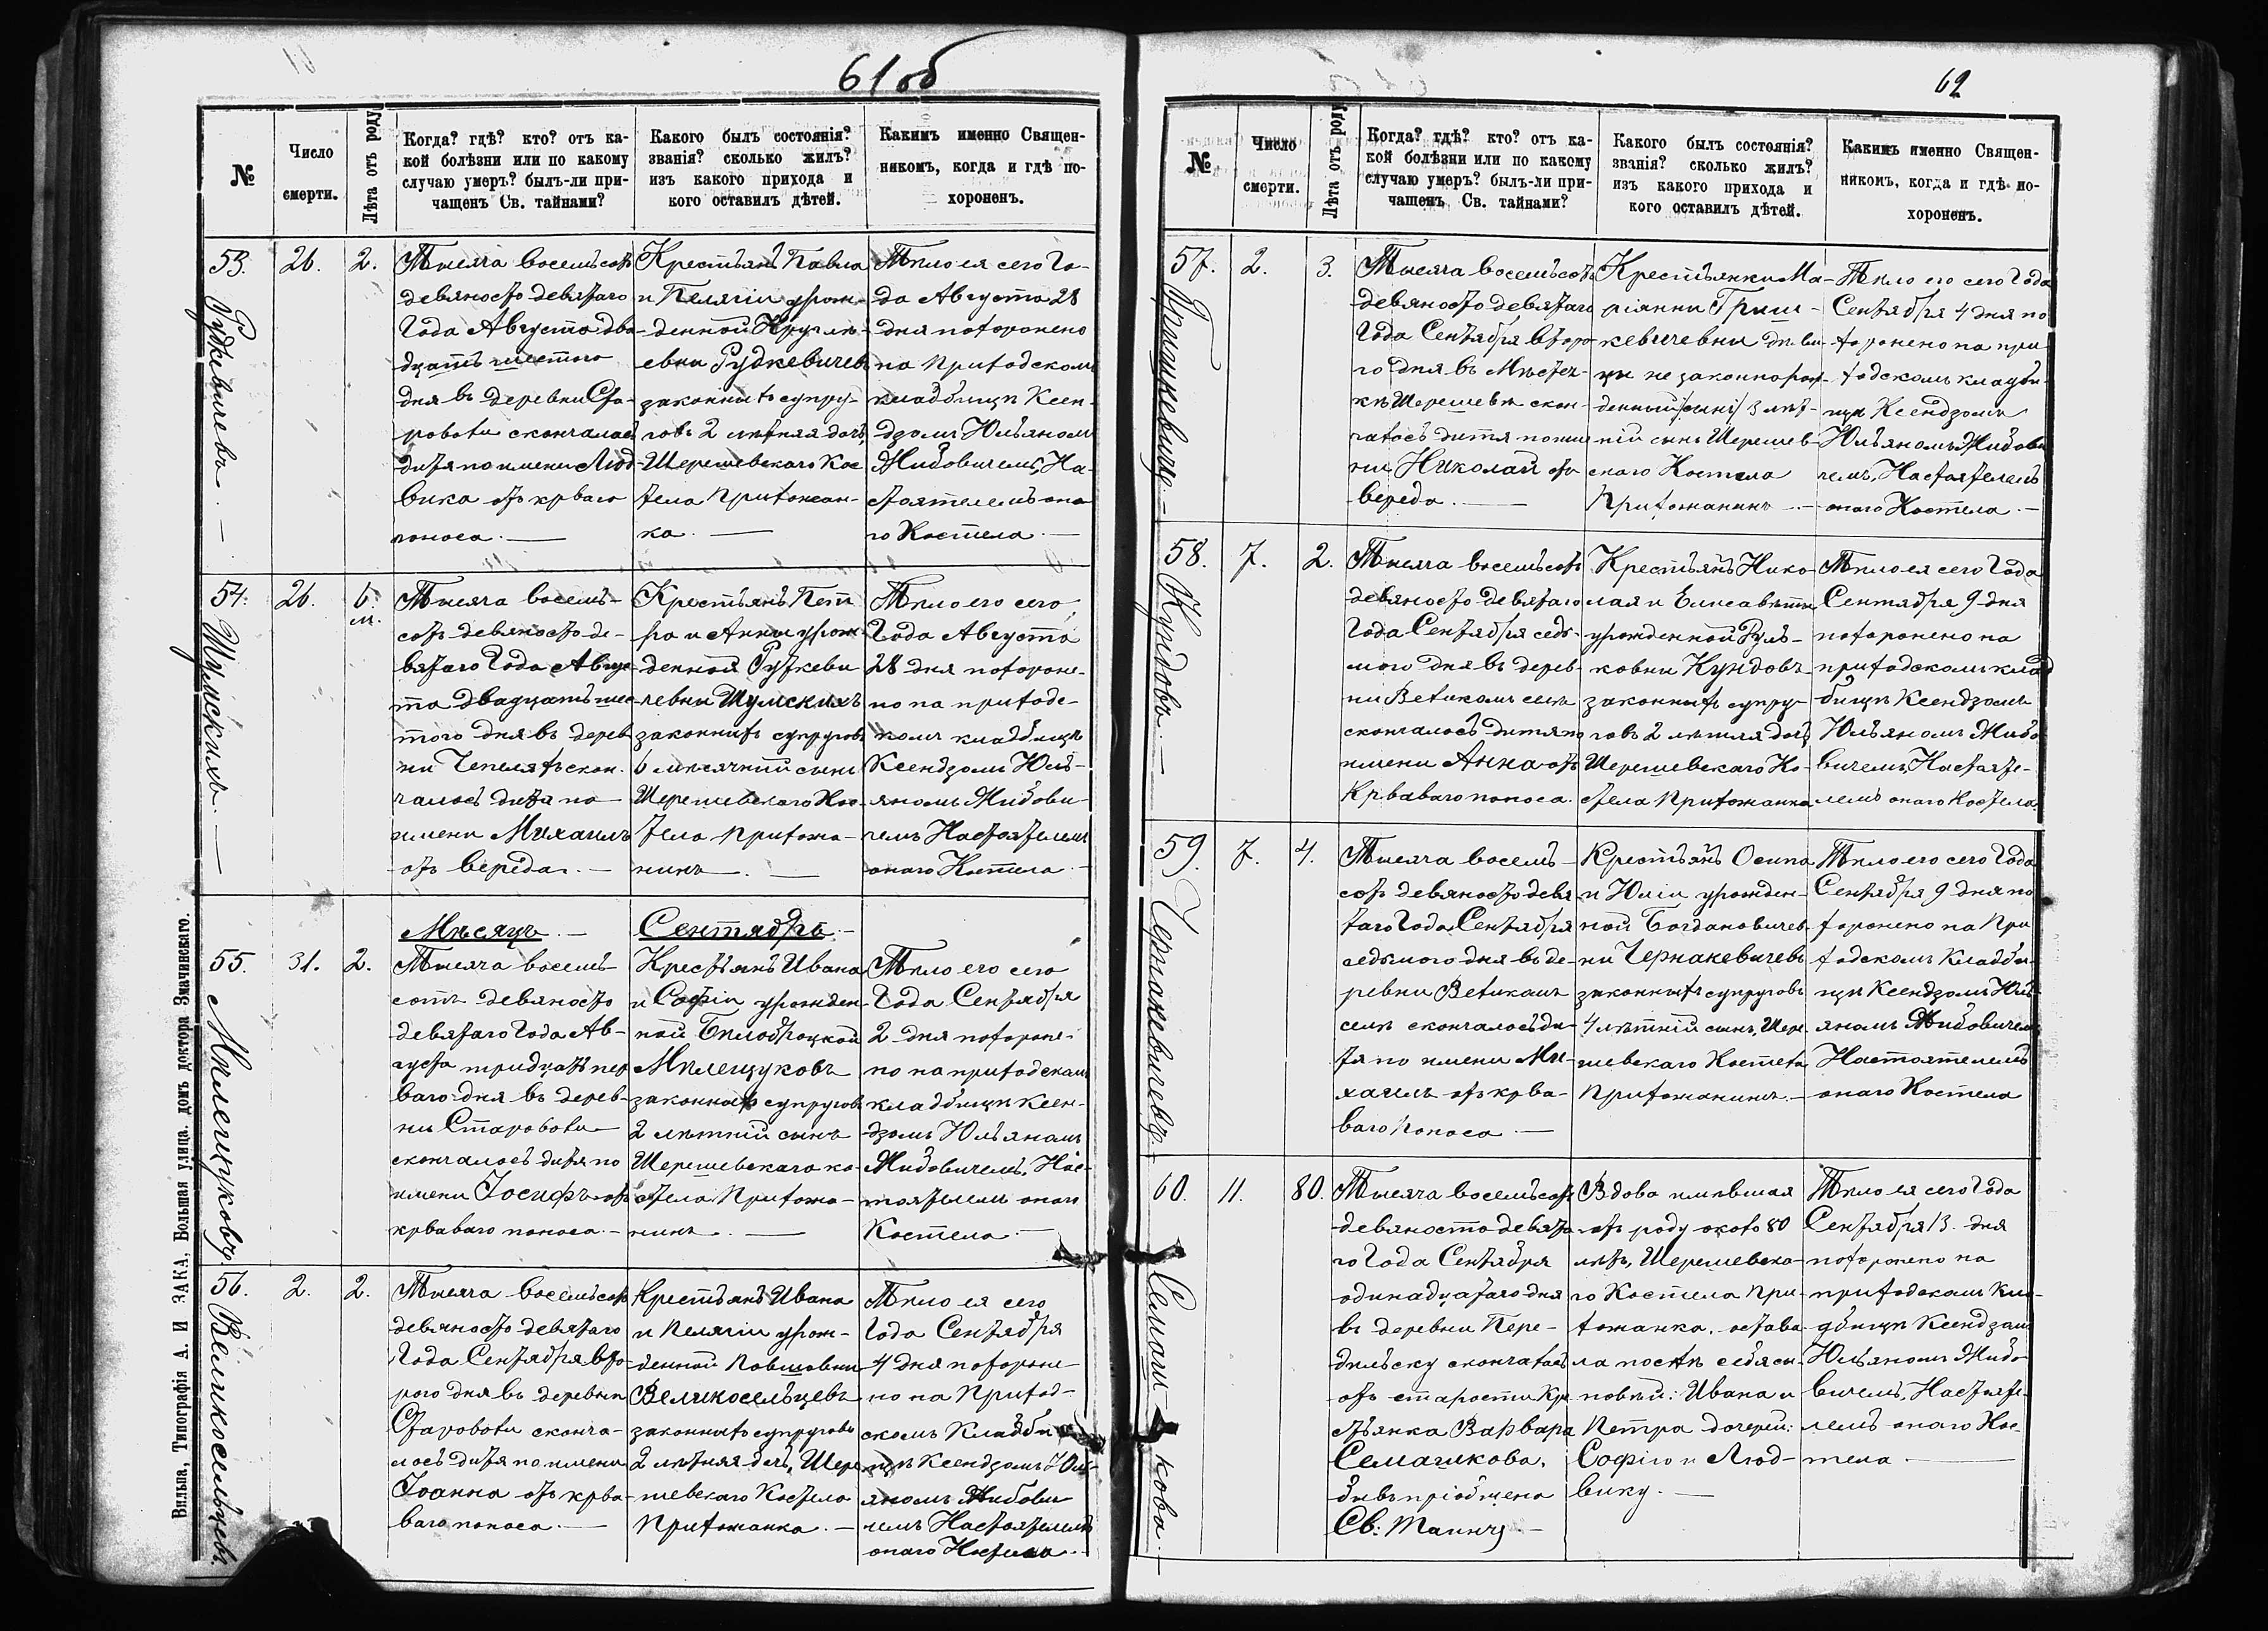 61 об
№
Число
смерти.
Лѣта отъ роду
Когда? гдѣ? кто? отъ ка-
кой болѣзни или по какому
случаю умеръ? былъ-ли при-
чащенъ Св. тайнами?
Какого былъ состоянія?
званія? сколько жилъ?
изъ какого прихода и
кого оставилъ дѣтей.
Какимъ именно Священ-
никомъ, когда и гдѣ по-
хороненъ.
53.
Рудкевичевъ.
26.
2.
Тысяча восемьсотъ
девяносто девятаго
Года Августа два-
дцать шестого
дня въ деревни Ста-
роволи скончалось
дитя по имени Люд-
вика отъ крваго
поноса. —
Крестьянъ Павла
и Пелягіи урож-
денной Кругле-
евни Рудкевичевъ
законныхъ супру-
говъ 2 лѣтняя дочь,
Шерешевскаго Кос
тела Прихожан-
ка. —
Тѣло ея сего Го-
да Августа 28
дня похоронено
на Приходскомъ
кладбищѣ Ксен-
дзомъ Юльяномъ
Жибовичемъ, На-
стоятелемъ она
го Костела —
54.
Шумскихъ.
26.
6.
м.
Тысяча восемь-
сотъ девяносто де-
вятаго Года Авгус
та двадцать шес-
того дня въ дерев
ни Чепеляхъ скон-
чалось дитя по
имени Михаилъ
отъ вереда. —
Крестьянъ Пет
ра и Анны урож-
денной Руткеви
чевни Шумскихъ
законныхъ супруговъ
6 мѣсячний сынъ
Шерешевскаго Кос-
тела Прихожа-
нинъ. —
Тѣло его сего
Года Августа
28 дня похороне-
но на приходс-
комъ кладбищѣ
Ксендзомъ Юль-
яномъ Жибови-
чемъ Настоятелемъ
онаго Костела —
Мѣсяцъ. —
Сентябрь. —
55.
Мѣлещуковъ.
31.
2.
Тысяча восемь-
сотъ девяносто
девятаго Года Ав-
густа тридцать пер
ваго дня въ дерев-
ни Староволи
скончалось дитя по
имени Іосифъ отъ
крваваго поноса. —
Крестьянъ Ивана
и Софіи урожден-
ной Бѣлобродцкой
Мѣлещуковъ
законныхъ супруговъ
2 лѣтній сынъ
Шерешевскаго ко-
стела Прихожа-
нинъ. —
Тѣло его сего
Года Сентября
2 дня похороне-
но на приходскомъ
кладбищѣ Ксен-
дзомъ Юльяномъ
Жибовичемъ, Нас-
тоятелемъ онаго
Костела —
56.
Великосельцевъ.
2.
2.
Тысяча восемьсотъ
девяносто девятаго
Года Сентября вто-
рого дня въ деревни
Староволи сконча-
лось дитя по имени
Іоанна отъ крва-
ваго поноса. —
Крестьянъ Ивана
и Пелягіи урож-
денной Павловни
Великосельцевъ
законныхъ супруговъ
2 лѣтняя дочь, Шере
шевскаго Костела
Прихожанка. —
Тѣло ея сего
Года Сентября
4 дня похороне-
но на Приход-
скомъ Кладби
щѣ Ксендзомъ Юль-
яномъ Жибови
чемъ Настоятелемъ
онаго Костела —
Вильна, Типографія А. И ЗАКА, Большая улица, домъ доктора Змачинскаго.
62
№
Число
смерти.
Лѣта отъ роду
Когда? гдѣ? кто? отъ ка-
кой болѣзни или по какому
случаю умеръ? былъ-ли при-
чащенъ Св. тайнами?
Какого былъ состоянія?
званія? сколько жилъ?
изъ какого прихода и
кого оставилъ дѣтей.
Какимъ именно Священ-
никомъ, когда и гдѣ по-
хороненъ.
57.
2.
3.
Тысяча восемьсотъ
девяносто девятаго
Года Сентября второ
го дня въ Мѣстеч-
кѣ Шерешевѣ скон-
чалось дитя по име
ни Николай отъ
вереда. —
Крестьянки Ма-
ріянни Гриш-
кевичевни дѣви-
цы не законнорож-
денный (сынъ) 3 лѣт-
ній сынъ Шерешев
скаго Костела
Прихожанинъ. —
Тѣло его сего Года
Сентября 4 дня по
хоронено на при
ходскомъ кладби-
щѣ Ксендзомъ
Юльяномъ Жибови
чемъ, Настоятелемъ
онаго Костела. —
58.
Кундовъ. —
7.
2.
Тысяча восемьсотъ
девяносто девятаго
Года Сентября седь-
мого дня въ дерев-
ни Великомъ селѣ
скончалось дитя по
имени Анна отъ
Крваваго поноса.
Крестьянъ Нико-
лая и Елисаветы
урожденной Руль-
ковни Кундовъ
законныхъ супру-
говъ 2 лѣтняя дочь
Шерешевскаго Ко-
стела Прихожанка
Тѣло ея сего Года
Сентября 9 дня
похоронено на
приходскомъ клад
бищѣ Ксендзомъ
Юльяномъ Жибо
вичемъ, Настояте-
лемъ онаго Костела.
59.
Чернакевичевъ. —
7.
4.
Тысяча восемь-
сотъ девяносто девя
таго Года Сентября
седьмого дня въ де-
ревни Великомъ
селѣ скончалось ди-
тя по имени Ми-
хаилъ отъ крва-
ваго поноса. —
Крестьянъ Осипа
и Юліи урожден-
ной Богдановичев
ни Чернакевичевъ
законныхъ супруговъ
4 лѣтній сынъ, Шере
шевскаго Костела
Прихожанинъ. —
Тѣло его сего Года
Сентября 9 дня по
хоронено на При
ходскомъ Кладби-
щѣ Ксендзомъ Юль-
яномъ Жибовичемъ
Настоятелемъ
онаго Костела
60.
Семашкова. —
11.
80.
Тысяча восемьсотъ
девяносто девята
го Года Сентября
одинадцатаго дня
въ деревни Пере-
дѣльску скончалась
отъ старости Кре
стьянка Варвара
Семашкова,
бывъ пріобщена
Св: Таинъ. —
Вдова имѣвшая
отъ роду около 80
лѣтъ, Шерешевска-
го Костела При-
хожанка, остави-
ла послѣ себя сы-
новѣй: Ивана и
Петра дочерей:
Софію и Люд-
вику. —
Тѣло ея сего Года
Сентября 13 дня
похоронено на
приходскомъ Кла-
дбищѣ Ксендзомъ
Юльяномъ Жибо-
вичемъ, Настояте-
лемъ онаго Кос-
тела —